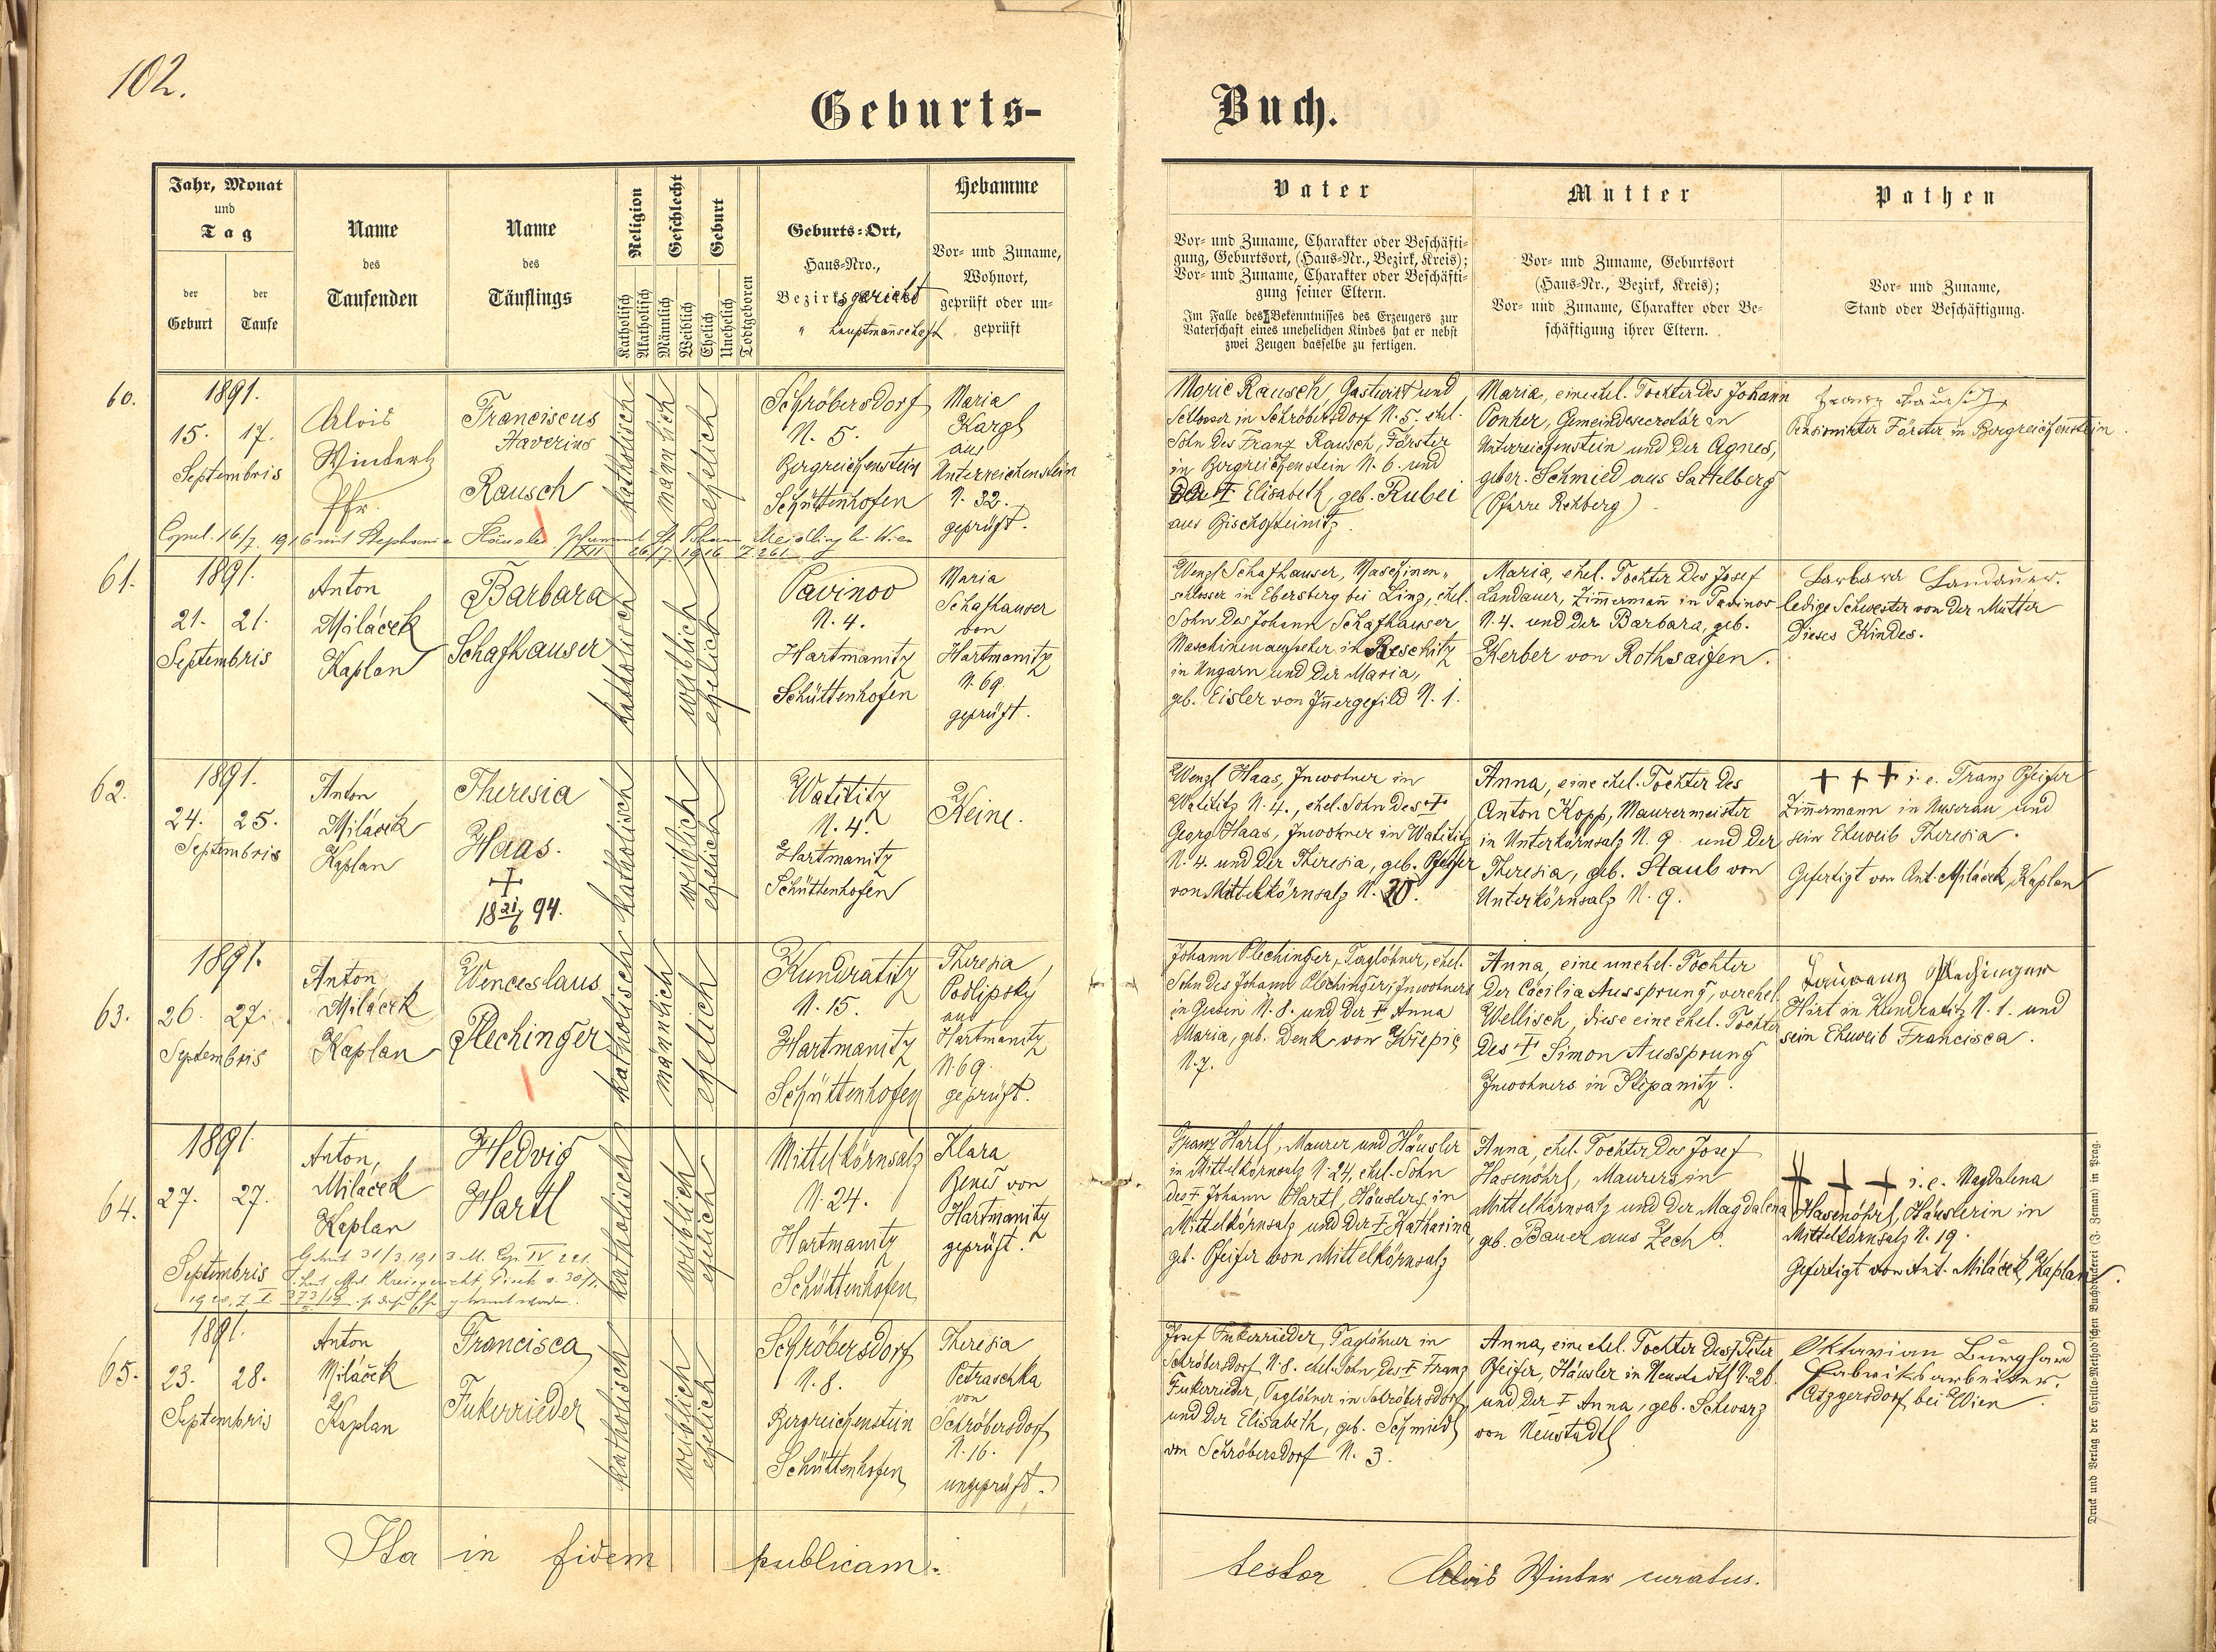 102.
Geburts-
Buch.
Jahr, Monat
und
Tag
der
Geburt
der
Taufe
Name
des
Taufenden
Name
des
Täuflings
Religion
Katholisch
Akatholisch
Geschlecht
Männlich
Weiblich
Geburt
Ehelich
Unehelich
Todtgeboren
Geburts-Ort,
Haus-Nro.,
Bezirksgericht
" hauptmannschaft
Hebamme
Vor- und Zuname,
Wohnort,
geprüft oder un-
geprüft
Vater
Vor- und Zuname, Charakter oder Beschäfti-
gung, Geburtsort, (Haus-Nr., Bezirk, Kreis);
Vor- und Zuname, Charakter oder Beschäfti-
gung seiner Eltern.
Im Falle des Bekenntnisses des Erzeugers zur
Vaterschaft eines unehelichen Kindes hat er nebst
zwei Zeugen dasselbe zu fertigen.
Mutter
Vor- und Zuname, Geburtsort
(Haus-Nr., Bezirk, Kreis);
Vor- und Zuname, Charakter oder Be-
schäftigung ihrer Eltern.
Pathen
Vor- und Zuname,
Stand oder Beschäftigung.
60.
1891.
15. 17.
Septembris
Alois
Winter
Pfr.
Franciscus
Xaverius
Rausch
katholisch
männlich
ehelich
Schröbersdorf
N. 5.
Bergreichenstein
Schüttenhofen
Maria
Kargl
aus
Unterreichenstein
N. 32.
geprüft.
Moric Rausch, Gastwirt und
Selbstser in Schröbersdorf N. 5. ehel.
Sohn des Franz Rausch, Förster
in Bergreichenstein N. 6. und
der † Elisabeth, geb. Rubei
aus Bischofteinitz.
Maria, eine ehel. Tochter des Johann
Ponker, Gemeindesecretär in
Unterreichenstein und der Agnes,
gebor. Schmied aus Sattelberg
(Pfarre Rehberg)
Franz Rausch
Pensionirter Förster in Bergreichenstein.
Copul. 16/7. 1916 mit Stephanie
61.
1891.
21. 21.
Septembris
Anton
Miláček
Kaplan
Barbara
Schafhauser
katholisch
weiblich
ehelich
Pavinov
N. 4.
Hartmanitz
Schüttenhofen
Maria
Schafhauser
von
Hartmanitz
N. 69.
geprüft.
Wenzl Schafhauser, Maschinen-
schlosser in Ebersberg bei Linz, ehel.
Sohn des Johann Schafhauser
Maschinenaufseher in Reschitz
in Ungarn und der Maria,
geb. Eisler von Innergefild N. 1.
Maria, ehel. Tochter des Josef
Landauer, Zimmermann in Pavinov
N. 4. und der Barbara, geb.
Kerber von Rothsaifen.
Barbara Landauer.
ledige Schwester von der Mutter
dieses Kindes.
62.
1891.
24. 25.
Septembris
Anton
Miláček
Kaplan
Theresia
Haas.
†
18 21/6 94.
katholisch
weiblich
ehelich
Watititz
N. 4.
Hartmanitz
Schüttenhofen
Keine.
Wenzl Haas, Inwohner in
Watititz N. 4., ehel. Sohn des †
Georg Haas, Inwohner in Watititz
N. 4. und der Theresia, geb. Pfeifer
von Mittelkörnsalz N. 20.
Anna, eine ehel. Tochter des
Anton Kopp, Maurermeister
in Unterkörnsalz N. 9. und der
Theresia, geb. Staub von
Unterkörnsalz N. 9.
+ + + i. e. Franz Pfeifer
Zimmermann in Nuserau und
sein Eheweib Theresia.
Gefertigt von Ant. Miláček, Kaplan
63.
1891.
26. 27.
Septembris
Anton
Miláček
Kaplan
Wenceslaus
Plechinger
katholisch
männlich
ehelich
Kundratitz
N. 15.
Hartmanitz
Schüttenhofen
Theresia
Podlipsky
aus
Hartmanitz
N. 69.
geprüft.
Johann Plechinger, Taglöhner, ehel.
Sohn des Johann Plechinger, Inwohners
in N. 8. und der † Anna
Maria, geb. Denk von Křepic
N. 7.
Anna, eine unehel. Tochter
der Cäcilia Aussprung, verehel.
Wellisch, diese eine ehel. Tochter
des † Simon Aussprung
Inwohners in Stepanitz.
Hirt in Kundratitz N. 1. und
sein Eheweib Francisca.
64.
1891
27. 27.
Septembris
Anton,
Miláček
Kaplan
Hedvig
Hartl
katholisch
weiblich
ehelich
Mittelkörnsalz
N. 24.
Hartmanitz
Schüttenhofen
Klara
Beneš von
Hartmanitz
geprüft.
Franz Hartl, Maurer und Häusler
in Mittelkörnsalz N. 24, ehel. Sohn
des † Johann Hartl, Häuslers in
Mittelkörnsalz und der † Katharina
geb. Pfeifer von Mittelkörnsalz
Anna, ehel. Tochter des Josef
Hasenöhrl, Maurers in
Mittelkörnsalz und der Magdalena
geb. Bauer aus Zech.
+ + + i. e. Magdalena
Hasenöhrl, Häuslerin in
Mittelkörnsalz N. 19.
Gefertigt von Ant. Miláček, Kaplan.
65.
1891.
23. 28.
Septembris
Anton
Miláček
Kaplan
Francisca
Fukerrieder
katholisch
weiblich
ehelich
Schröbersdorf
N. 8.
Bergreichenstein
Schüttenhofen
Theresia
Petraschka
von
Schröbersdorf
N. 16.
ungeprüft.
Josef Fukerrieder, Taglöhner in
Schröbersdorf N. 8. ehel. Sohn des † Franz
Fukerrieder, Taglöhner in Schröbersdorf
und der Elisabeth, geb. Schmied
von Schröbersdorf N. 3.
Anna, eine ehel. Tochter des Peter
Pfeifer, Häusler in Neustadtl N. 26
und der † Anna, geb. Schwarz
von Neustadtl
Oktavian Burghard
Fabriksarbeiter.
Atzgersdorf bei Wien.
Ita in fidem publicam.
testor Alois Winter curatus.
Druck und Verlag der Cyrillo-Method'schen Buchdruckerei (J. Zeman) in Prag.